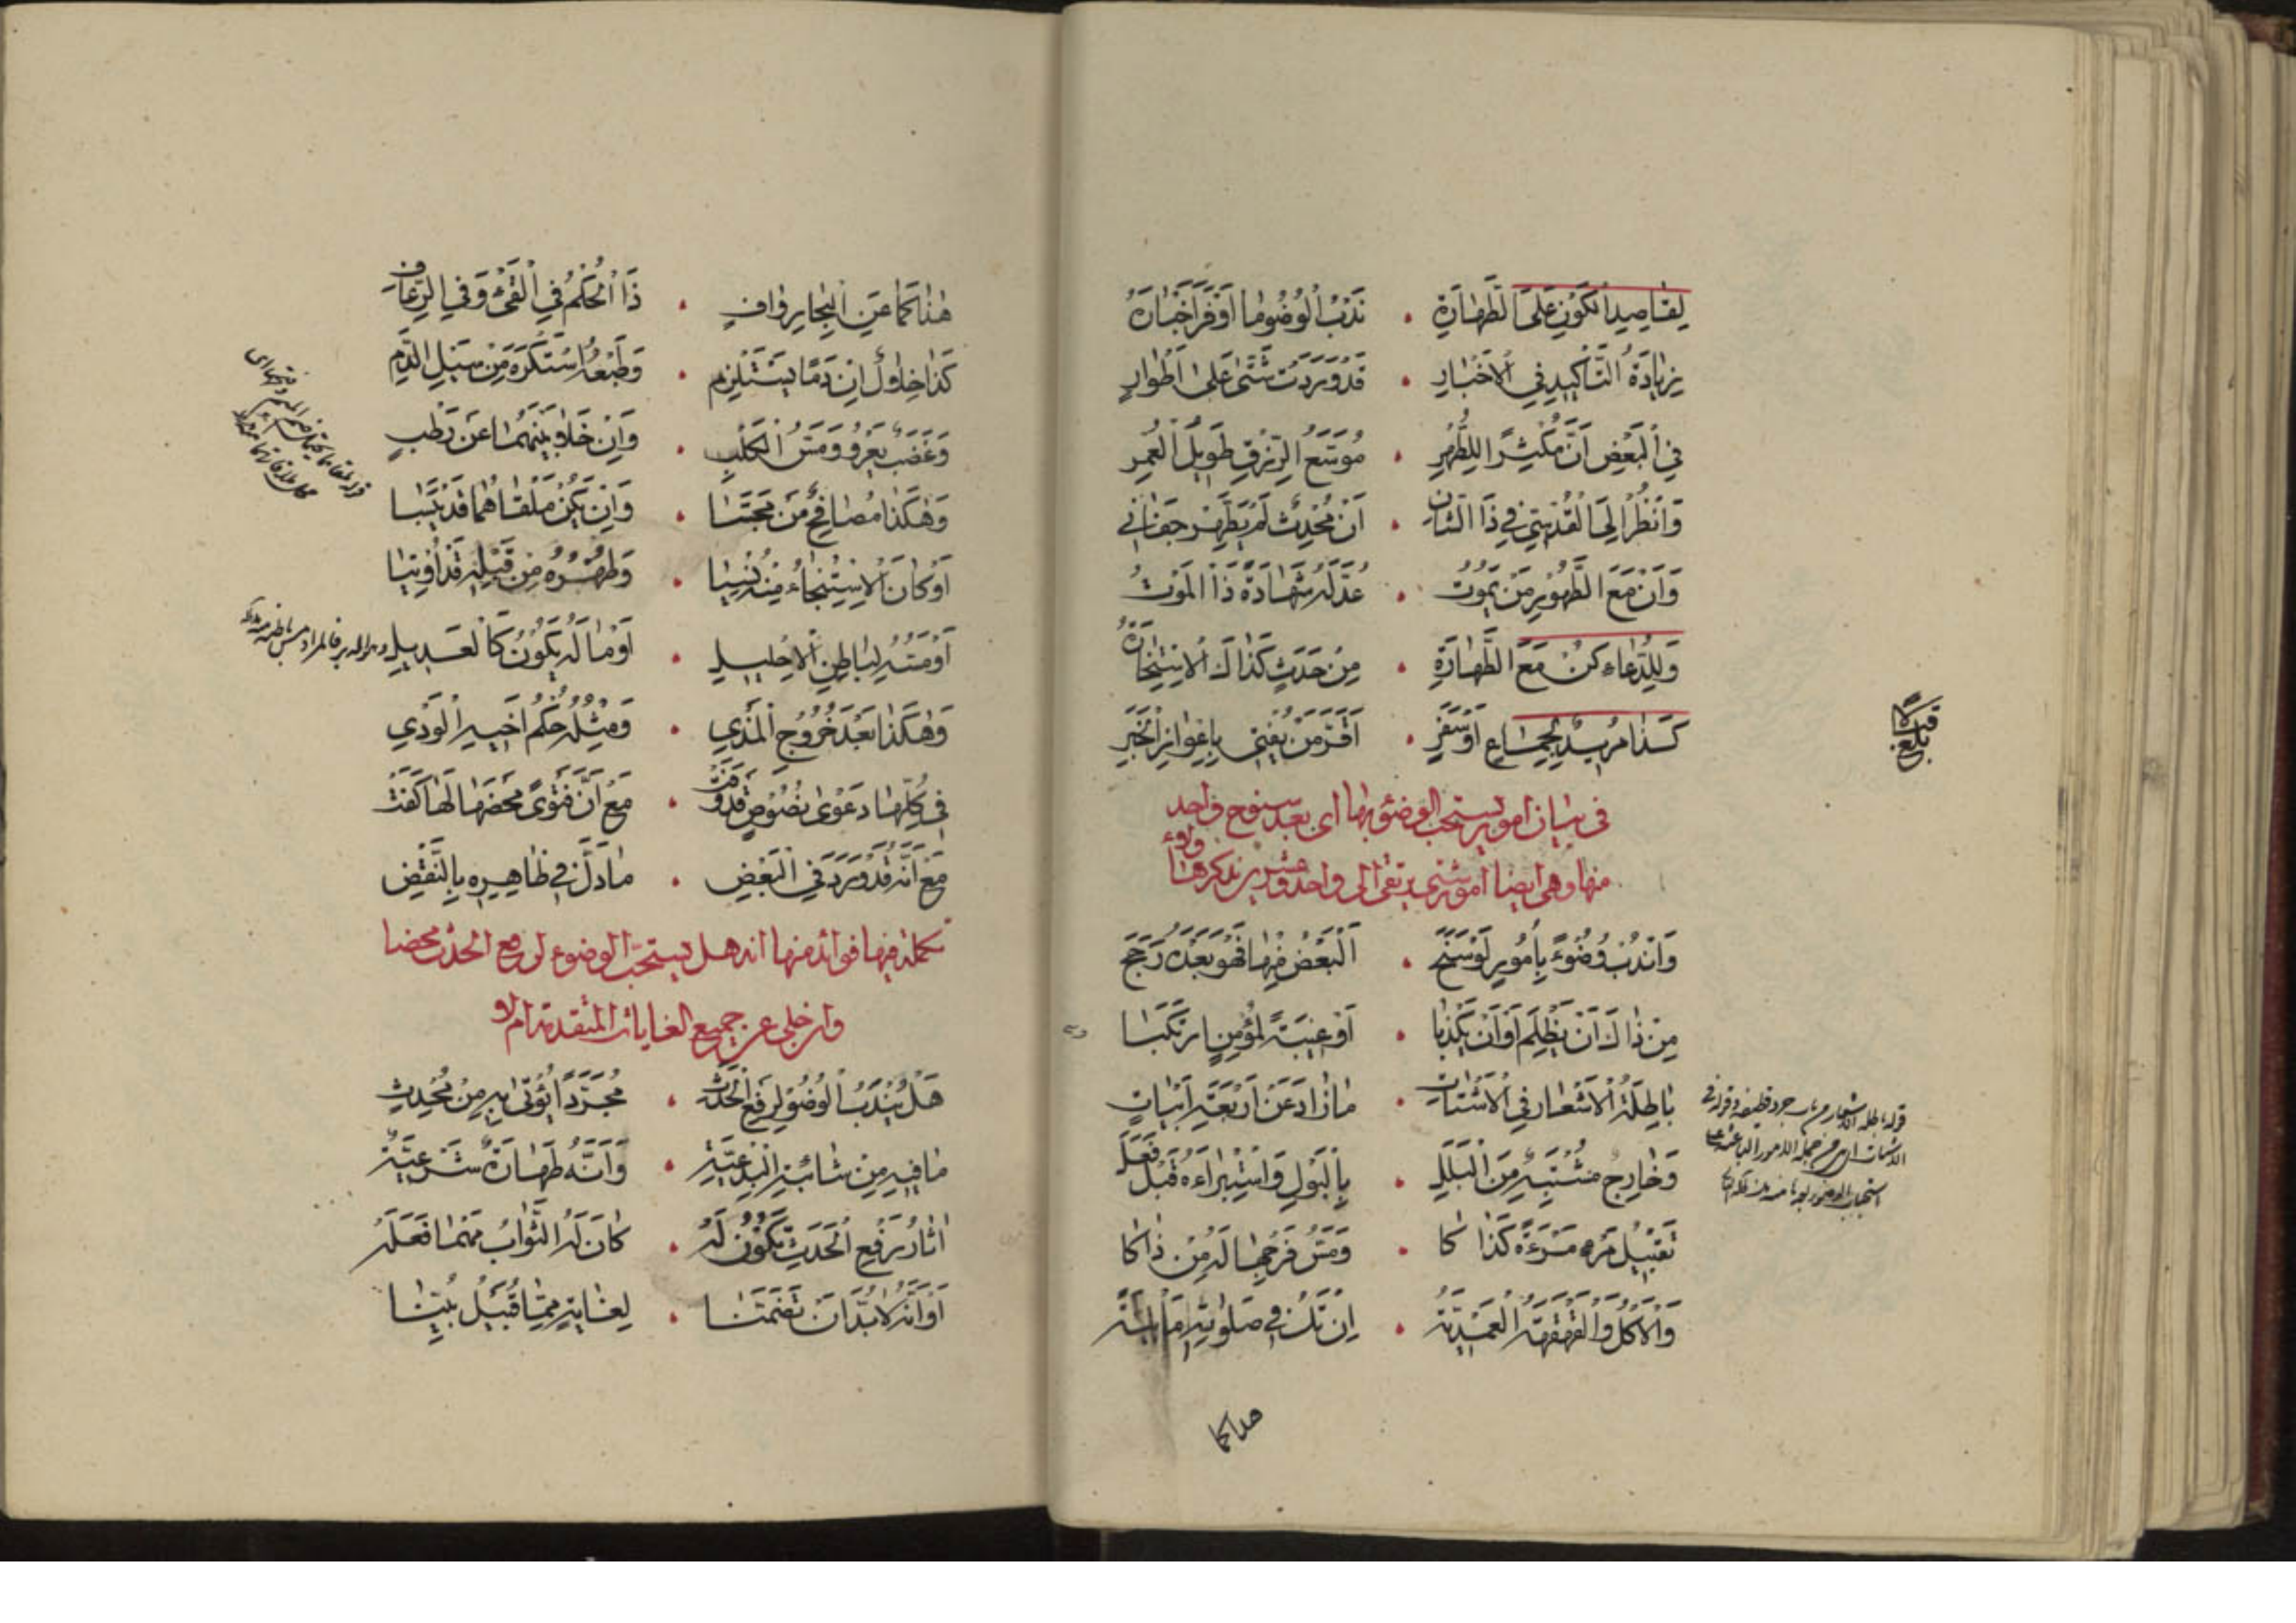 لِقَاصِدِ الْكَوْنِ عَلَى الطَّهَارَةِ . نَدْبُ الْوُضُو مَا أَوْفَرَ أَخْبَارَهُ
بِزِيَادَةُ التَّأْكِيدِ فِي الْأَخْبَارِ . قَدْ وَرَدَتْ شَتَّى عَلَى أَطْوَارِ
فِي الْبَعْضِ أَنَّ مُكْثِرًا لِلطُّهْرِ . مُوَسَّعُ الرِّزْقِ طَوِيلُ الْعُمْرِ
وَانْظُرْ إِلَى الْقُدْسِيِّ فِي ذَا الشَّانِ . أَنْ مُحْدِثٌ لَمْ يَطَّهِرْ جَفَانِي
وَأَنْ مَعَ الطَّهُورِ مَنْ يَمُوتُ . عُدَّ لَهُ شَهَادَةً ذَا الْمَوْتُ
وَلِلدُّعَاءِ كُنْ مَعَ الطَّهَارَةِ . مِنْ حَدَثٍ كَذَاكَ الِاسْتِخَارَةُ
كَذَا مُرِيدٌ لِجِمَاعٍ أَوْ سَفَرٍ . أَقَرَّ مَنْ يُفْتِي بِإِعْوَازِ الْخَبَرِ
فى بيان امور يستحب الوضوء بها اى بعد سنوح واحد
منها وهى ايضا امور شتى يرتقى الى واحد وعشرين نذكرها ولاء
وَانْدُبْ وُضُوءً بِأُمُورٍ لَوْ سَنَحَ . الْبَعْضُ فِيهَا فَهُوَ بَعْدُ رَجَحَ
مِنْ ذَاكَ أَنْ يَظْلِمَ أَوْ أَنْ يَكْذِبَا . أَوْ غِيبَةً لِمُؤْمِنٍ ارْتَكَبَا
بَاطِلَةُ الْأَشْعَارِ فِي الْأَشْتَاتِ . مَا زَادَ عَنْ أَرْبَعَةِ أَبْيَاتِ
وَخَارِجٌ مُشْتَبِهٌ مِنَ الْبَلَلِ . بِالْبَوْلِ وَاسْتِبْرَاءَهُ قَبْلُ فَعَلَ
تَقْبِيلُ مَرْءٍ مَرْءَةً كَذَا كَا . وَمَسُّ فَرْجِهَا لَهُ مِنْ ذَاكَا
وَالْأَكْلُ وَالْقَهْقَهَةُ الْعَمْدِيَّةُ . إِنْ تَكُ فِي صَلَوتِهِ
قبلا
بلغ
هذا كما
هٰذَا كَمَا عَنِ الْبِحَارِ وَافٍ . ذَا الْحُكْمُ فِي الْقَيْءِ وَفِي الرُّعَافِ
كَذَا خِلَاوُلٌ إِنْ دَمًا يَسْتَلْزِمِ . وَطَبْعُهُ اسْتَكْرَهَ مِنْ سَيْلِ الدَّمِ
وَغَضَبٌ يَعْرُو وَمَسُّ الْكَلْبِ . وَإِنْ خَلَا بَيْنَهُمَا عَنْ رَطْبٍ
وَهٰكَذَا مُصَافِحٌ مَنْ مَجَّسَا . وَإِنْ يَكُنْ مَلْقَاهُمَا قَدْ يَبِسَا
أَوْ كَانَ الِاسْتِنْجَاءُ مِنْهُ نُسِيَا . وَطُهْرُهُ مِنْ قَبْلِهِ قَدْ أُوتِيَا
أَوْ مَسَّهُ لِبَاطِنِ الْإِحْلِيلِ . أَوْ مَا لَهُ يَكُونُ كَالْعَدِيلِ
وَهٰكَذَا بَعْدَ خُرُوجِ الْمَذْيِ . وَمِثْلُهُ حُكْمُ أَخِيهِ الْوَدْيِ
فِي كُلِّهَا دَعْوَى نُصُوصٍ قَدْ وَفَتْ . مَعْ أَنَّ فَتْوًى مَحْضَهَا لَهَا كَفَتْ
مَعْ أَنَّهُ قَدْ وَرَدَ فِي الْبَعْضِ . مَا دَلَّ فِي ظَاهِرِهِ بِالنَّقْضِ
تكملة فيها فوائد منها انه هل يستحب الوضوء لرفع الحدث محضا
وان خلى عن جميع الغايات المتقدمة ام لا
هَلْ يُنْدَبُ الْوُضُو لِرَفْعِ الْحَدَثِ . مُجَرَّدًا يُؤْتَى بِهِ مِنْ مُحْدِثِ
مَا فِيهِ مِنْ شَائِبَةِ الْبِدْعِيَّةِ . وَأَنَّهُ طَهَارَةٌ شَرْعِيَّةٌ
آثَارُ رَفْعِ الْحَدَثِ تَكُونُ لَهُ . كَانَ لَهُ الثَّوَابُ مَهْمَا فَعَلَهُ
أَوْ أَنَّهُ لَا بُدَّ أَنْ تَضَمَّنَا . لِغَايَةٍ مِمَّا قُبَيْلُ بُيِّنَا